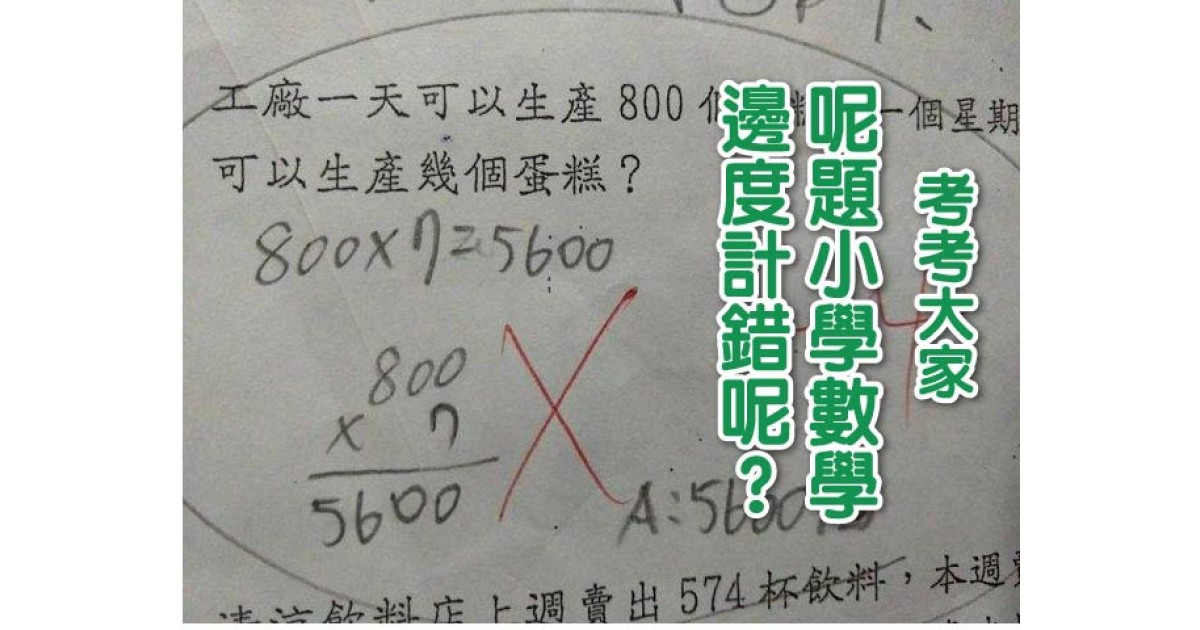 工廠一天可以生產 800 個 一個星期
可以生產幾個蛋糕？
800×7=5600
800
× 7
5600
A:5600
考考大家
呢題小學數學
邊度計錯呢？
清涼飲料店上週賣出 574 杯飲料，本週